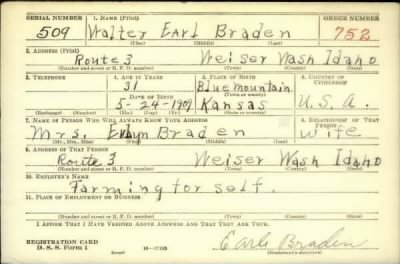 SERIAL NUMBER 1. NAME (Print) ORDER NUMBER
509 Walter Earl Braden 752
(First) (Middle) (Last)
2. ADDRESS (Print)
Route 3 Weiser Wash Idaho
(Number and street or R. F. D. number) (Town) (County) (State)
3. TELEPHONE 4. AGE IN YEARS 5. PLACE OF BIRTH 6. COUNTRY OF CITIZENSHIP
31 Blue mountain
DATE OF BIRTH (Town or county)
5-24-1909 Kansas U.S.A.
(Exchange) (Number) (Mo.) (Day) (Yr.) (State or country)
7. NAME OF PERSON WHO WILL ALWAYS KNOW YOUR ADDRESS 8. RELATIONSHIP OF THAT PERSON
Mrs. Braden wife
(Mr., Mrs., Miss) (First) (Middle) (Last)
9. ADDRESS OF THAT PERSON
Route 3 Weiser Wash Idaho
(Number and street or R. F. D. number) (Town) (County) (State)
10. EMPLOYER'S NAME
Farming for self.
11. PLACE OF EMPLOYMENT OR BUSINESS
(Number and street or R. F. D. number) (Town) (County) (State)
I AFFIRM THAT I HAVE VERIFIED ABOVE ANSWERS AND THAT THEY ARE TRUE.
REGISTRATION CARD
D. S. S. Form 1 (over) 16-17105 Earle Braden
(Registrant's signature)